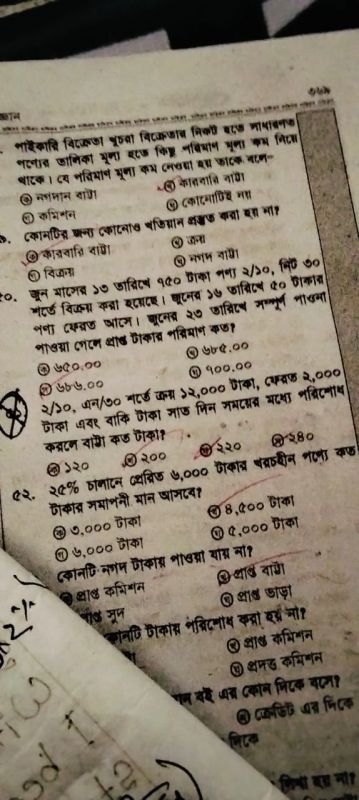 ৩৬৯
পাইকারি বিক্রেতা খুচরা বিক্রেতার নিকট হতে সাধারণত
পণ্যের তালিকা মূল্য হতে কিছু পরিমাণ মূল্য কম নিয়ে
থাকে। যে পরিমাণ মূল্য কম নেওয়া হয় তাকে বলে—
ক নগদান বাট্টা
খ কারবারি বাট্টা
গ কমিশন
ঘ কোনোটিই নয়
কোনটির জন্য কোনোও খতিয়ান প্রস্তুত করা হয় না?
ক কারবারি বাট্টা
খ ক্রয়
গ বিক্রয়
ঘ নগদ বাট্টা
৫০. জুন মাসের ১৩ তারিখে ৭৫০ টাকা পণ্য ২/১০, নিট ৩০
শর্তে বিক্রয় করা হয়েছে। জুনের ১৬ তারিখে ৫০ টাকার
পণ্য ফেরত আসে। জুনের ২৩ তারিখে সম্পূর্ণ পাওনা
পাওয়া গেলে প্রাপ্ত টাকার পরিমাণ কত?
ক ৬৫০.০০
খ ৬৮৫.০০
গ ৬৮৬.০০
ঘ ৭০০.০০
২/১০, এন/৩০ শর্তে ক্রয় ১২,০০০ টাকা, ফেরত ২,০০০
টাকা এবং বাকি টাকা সাত দিন সময়ের মধ্যে পরিশোধ
করলে বাট্টা কত টাকা?
ক ১২০
খ ২০০
গ ২২০
ঘ ২৪০
৫২. ২৫% চালানে প্রেরিত ৬,০০০ টাকার খরচহীন পণ্যে কত
টাকার সমাপনী মান আসবে?
ক ৩,০০০ টাকা
খ ৪,৫০০ টাকা
গ ৬,০০০ টাকা
ঘ ৫,০০০ টাকা
কোনটি নগদ টাকায় পাওয়া যায় না?
প্রাপ্ত কমিশন
খ প্রাপ্ত বাট্টা
সুদ
ঘ প্রাপ্ত ভাড়া
কোনটি টাকায় পরিশোধ করা হয় না?
খ প্রাপ্ত কমিশন
ঘ প্রদত্ত কমিশন
বই এর কোন দিকে বসে?
খ ক্রেডিট এর দিকে
দিকে
লিখা হয় না?
2%